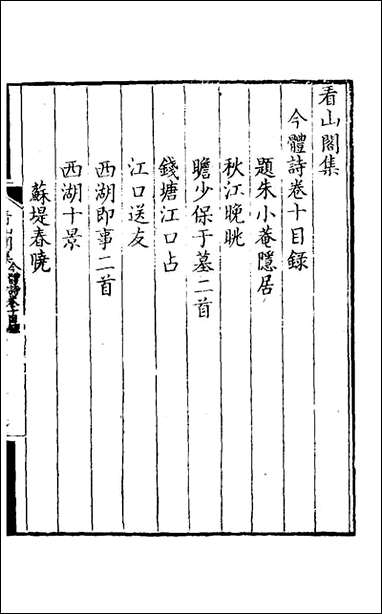 看山閣集
今體詩卷十目録
題朱小菴隱居
秋江晚眺
瞻少保于墓二首
錢塘江口占
江口送友
西湖即事二首
西湖十景
蘇堤春曉
看山閣集今體詩卷十目録